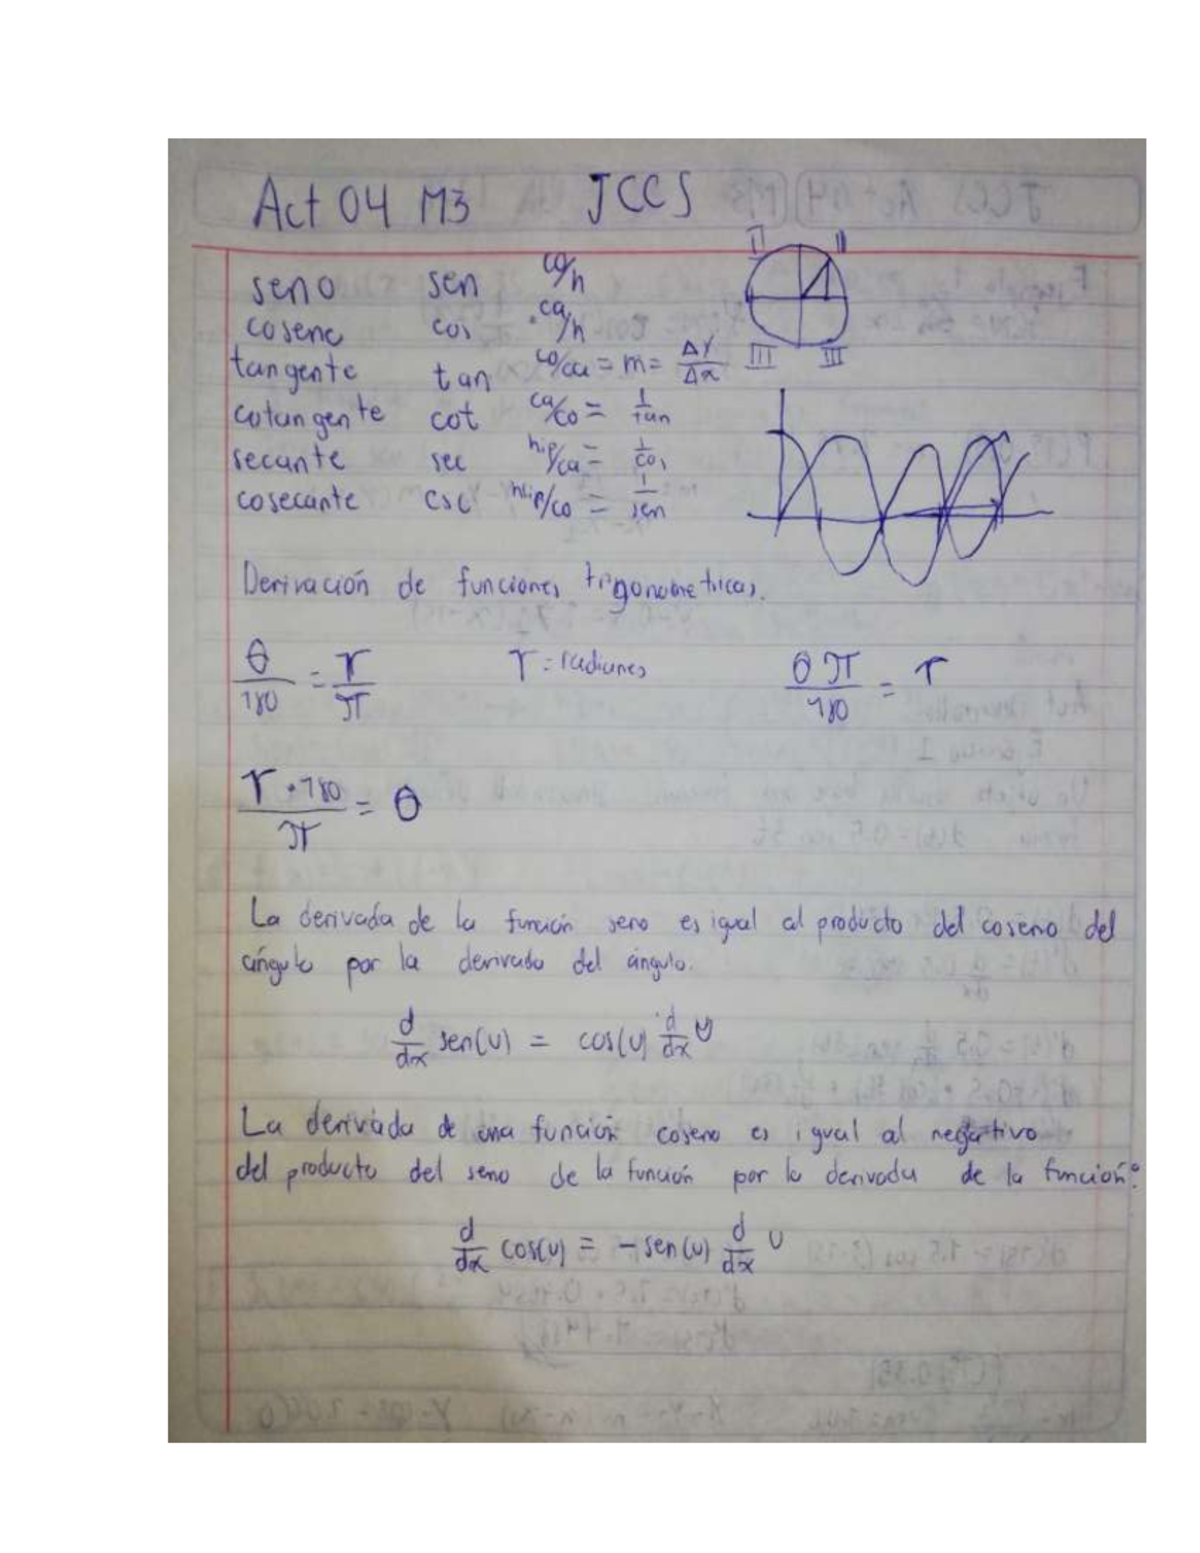 Act 04 M3 JCCS
seno sen co/h
coseno cos ca/h
tangente tan co/ca = m = ΔY/Δx
cotangente cot ca/co = 1/tan
secante sec hip/ca = 1/cos
cosecante csc hip/co = 1/sen
II II
III III
Derivación de funciones trigonometricas.
θ/180 = r/π r = radianes θπ/180 = r
r·180/π = θ
La derivada de la función seno es igual al producto del coseno del
ángulo por la derivada del ángulo.
d/dx sen(u) = cos(u) d/dx u
La derivada de una función coseno es igual al negativo
del producto del seno de la función por la derivada de la función:
d/dx cos(u) = -sen(u) d/dx u